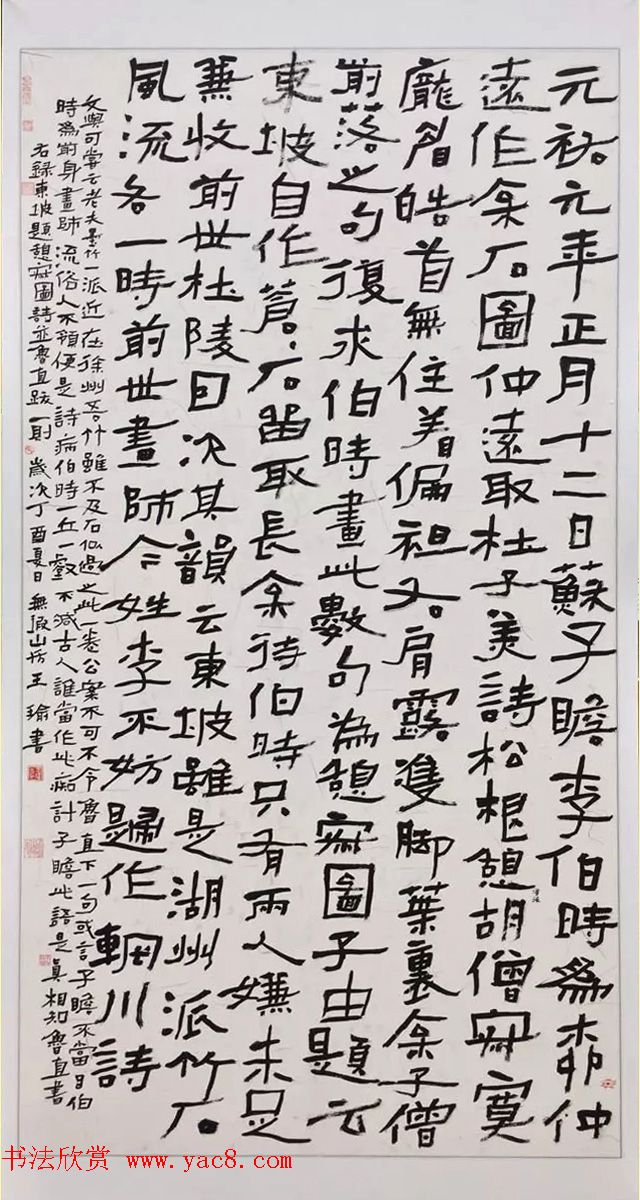 元祐元年正月十二日蘇子瞻李伯時為柳仲
遠作松石圖仲遠取杜子美詩松根憩胡僧寂寞
龐眉皓首無住著偏袒右肩露雙脚葉裏松子僧
前落之句復求伯時畫此數句為憩寂圖子由題云
東坡自作蒼蒼石留取長松待伯時只有兩人嫌未足
兼收前世杜陵因次其韻云東坡雖是湖州派竹石
風流各一時前世畫師今姓李不妨還作輞川詩
文與可嘗云老夫墨竹一派近在徐州吾竹雖不及石似過之此一卷公案不可不令魯直下一句或言子瞻不當目伯
時為前身畫師流俗人不領便是詩病伯時一丘一壑不減古人誰當作此痴計子瞻此語是真相知魯直書
右錄東坡題憩寂圖詩並魯直跋一則歲次丁酉夏日無假山坊王瑜書
书法欣赏 www.yac8.com